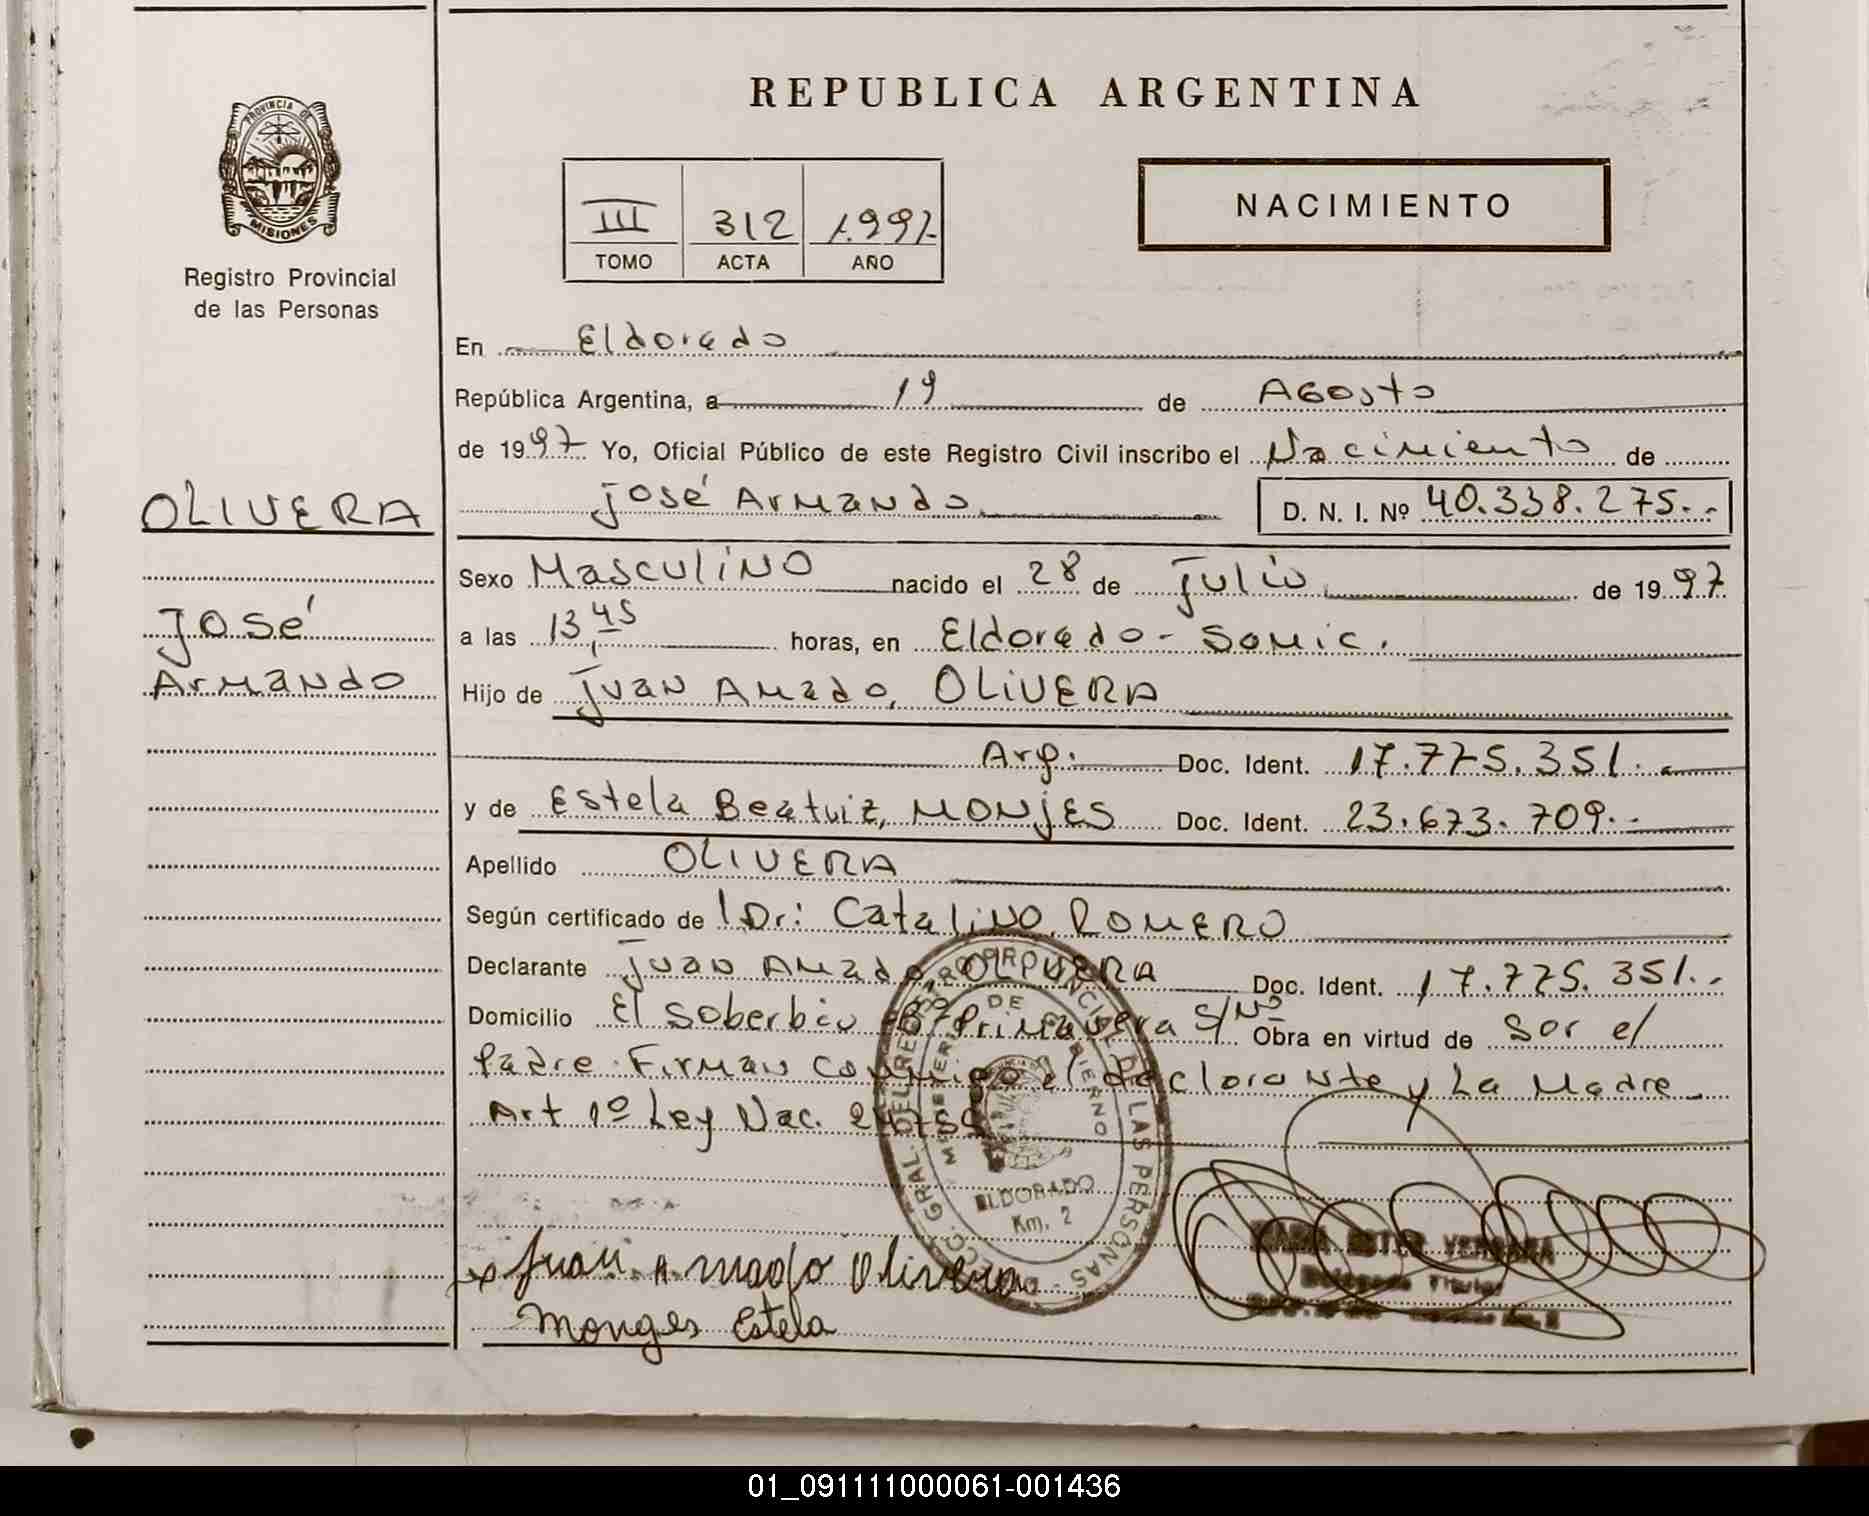 REPUBLICA ARGENTINA
PROVINCIA DE MISIONES
Registro Provincial
de las Personas
NACIMIENTO
III 312 1.997.-
TOMO ACTA AÑO
En Eldorado
República Argentina, a 19 de Agosto
de 1997 Yo, Oficial Público de este Registro Civil inscribo el Nacimiento de
José Armando D. N. I. Nº 40.338.275.-
OLIVERA
José
Armando
Sexo Masculino nacido el 28 de Julio de 1997
a las 13,45 horas, en Eldorado - Somic.
Hijo de Juan Amado, OLIVERA
Arg. Doc. Ident. 17.775.351.-
y de Estela Beatriz, MONJES Doc. Ident. 23.673.709.-
Apellido OLIVERA
Según certificado de Dr: Catalino, ROMERO
Declarante Juan Amado, OLIVERA Doc. Ident. 17.775.351.-
Domicilio El Soberbio Bº Primavera S/Nº Obra en virtud de Sor el
Padre. Firman conmigo el Declarante y La Madre
Art 1º Ley Nac.
DIRECC. GRAL. DEL REGISTRO PROVINCIAL DE LAS PERSONAS
MINISTERIO DE GOBIERNO
ELDORADO
Km. 2
Juan Amado Olivera
Monges Estela
MARIA ESTER VERGARA
Delegada Titular
01_091111000061-001436